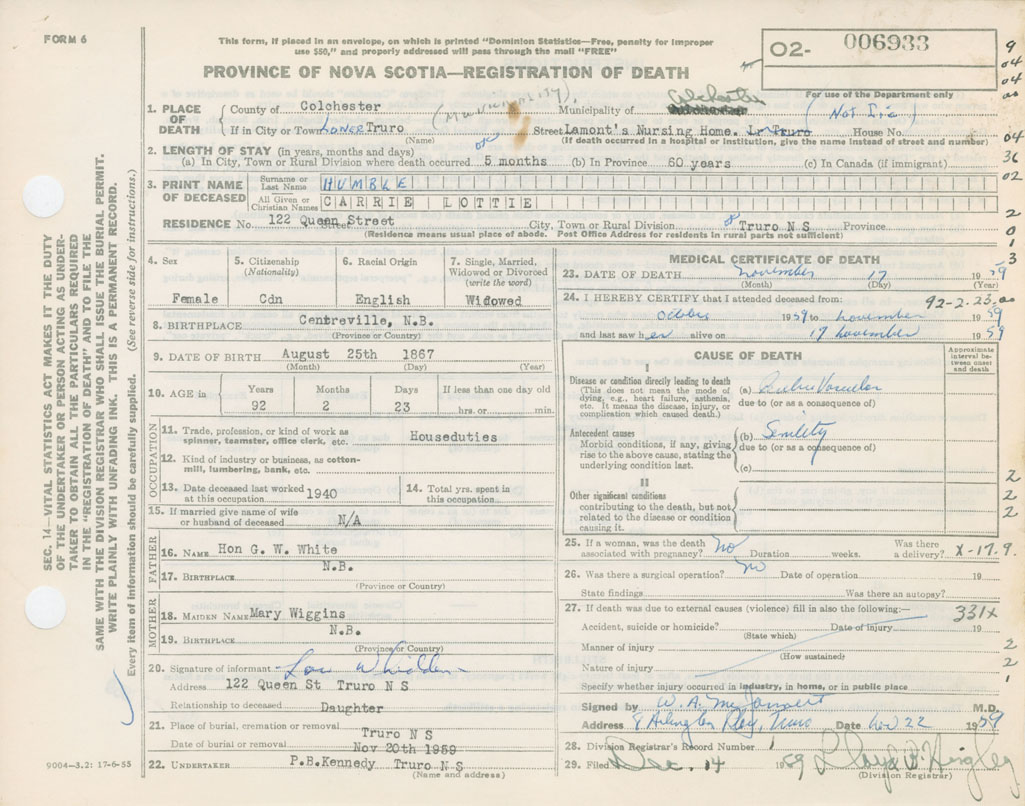 FORM 6
This form, if placed in an envelope, on which is printed "Dominion Statistics—Free, penalty for improper
use $50," and properly addressed will pass through the mail "FREE"
O2- 006933
PROVINCE OF NOVA SCOTIA—REGISTRATION OF DEATH
For use of the Department only
1. PLACE OF DEATH
County of Colchester
Municipality of Colchester
(Not Inc)
If in City or Town Lower Truro (Municipality)
(Name)
Street Lamont's Nursing Home. Lr Truro House No.
(If death occurred in a hospital or institution, give the name instead of street and number)
2. LENGTH OF STAY (in years, months and days)
(a) In City, Town or Rural Division where death occurred 5 months (b) In Province 60 years (c) In Canada (if immigrant)
3. PRINT NAME OF DECEASED
Surname or Last Name HUMBLE
All Given or Christian Names CARRIE LOTTIE
RESIDENCE No. 122 Queen Street
Street
City, Town or Rural Division Truro N S Province
(Residence means usual place of abode. Post Office Address for residents in rural parts not sufficient)
4. Sex
Female
5. Citizenship
(Nationality)
Cdn
6. Racial Origin
English
7. Single, Married,
Widowed or Divorced
(write the word)
Widowed
8. BIRTHPLACE Centreville, N.B.
(Province or Country)
9. DATE OF BIRTH August 25th 1867
(Month) (Day) (Year)
10. AGE in
Years Months Days If less than one day old
92 2 23 hrs. or min.
OCCUPATION
11. Trade, profession, or kind of work as
spinner, teamster, office clerk, etc. Houseduties
12. Kind of industry or business, as cotton-
mill, lumbering, bank, etc.
13. Date deceased last worked
at this occupation 1940
14. Total yrs. spent in
this occupation
15. If married give name of wife
or husband of deceased N/A
FATHER
16. NAME Hon G. W. White
17. BIRTHPLACE N.B.
(Province or Country)
MOTHER
18. MAIDEN NAME Mary Wiggins
19. BIRTHPLACE N.B.
(Province or Country)
20. Signature of informant
Address 122 Queen St Truro N S
Relationship to deceased Daughter
21. Place of burial, cremation or removal Truro N S
Date of burial or removal Nov 20th 1959
22. UNDERTAKER P.B.Kennedy Truro N S
(Name and address)
9004—3.2: 17-6-55
MEDICAL CERTIFICATE OF DEATH
23. DATE OF DEATH November 17 1959
(Month) (Day) (Year)
24. I HEREBY CERTIFY that I attended deceased from: 92-2-23
October 1959 to November 1959
and last saw her alive on 17 November 1959
CAUSE OF DEATH
Approximate
interval be-
tween onset
and death
I
Disease or condition directly leading to death
(This does not mean the mode of
dying, e.g., heart failure, asthenia,
etc. It means the disease, injury, or
complication which caused death.)
(a)
due to (or as a consequence of)
Antecedent causes
Morbid conditions, if any, giving
rise to the above cause, stating the
underlying condition last.
(b) Senility
due to (or as a consequence of)
(c)
II
Other significant conditions
contributing to the death, but not
related to the disease or condition
causing it.
25. If a woman, was the death
associated with pregnancy? No Duration weeks. Was there
a delivery? X-17.9.
26. Was there a surgical operation? No Date of operation 19
State findings Was there an autopsy?
27. If death was due to external causes (violence) fill in also the following:— 331x
Accident, suicide or homicide? Date of injury 19
(State which)
Manner of injury
(How sustained)
Nature of injury
Specify whether injury occurred in industry, in home, or in public place
Signed by M.D.
Address 8 Arlington Truro Date Nov 22 1959
28. Division Registrar's Record Number 1
29. Filed Dec. 14 1959
(Division Registrar)
9
04
04
04
36
02
2
0
1
3
2
2
2
2
2
1
SEC. 14—VITAL STATISTICS ACT MAKES IT THE DUTY
OF THE UNDERTAKER OR PERSON ACTING AS UNDER-
TAKER TO OBTAIN ALL THE PARTICULARS REQUIRED
IN THE "REGISTRATION OF DEATH" AND TO FILE THE
SAME WITH THE DIVISION REGISTRAR WHO SHALL ISSUE THE BURIAL PERMIT.
WRITE PLAINLY WITH UNFADING INK. THIS IS A PERMANENT RECORD.
Every item of information should be carefully supplied. (See reverse side for instructions.)